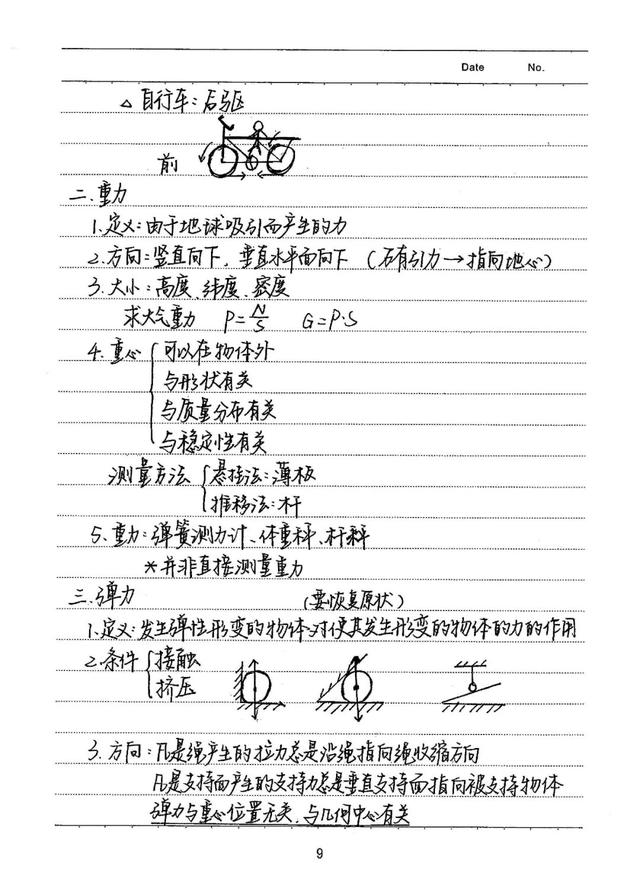 Date No.
△ 自行车：后驱
前
二、重力
1. 定义：由于地球吸引而产生的力
2. 方向：竖直向下，垂直水平面向下（万有引力→指向地心）
3. 大小：高度、纬度、密度
求大气重力 P=N/S G=P·S
4. 重心 { 可以在物体外
与形状有关
与质量分布有关
与稳定性有关
测量方法 { 悬挂法：薄板
推移法：杆
5. 重力：弹簧测力计、体重秤、杆秤
*并非直接测量重力
三、弹力 （要恢复原状）
1. 定义：发生弹性形变的物体对使其发生形变的物体的力的作用
2. 条件 { 接触
挤压
3. 方向：凡是绳产生的拉力总是沿绳指向绳收缩方向
凡是支持面产生的支持力总是垂直支持面指向被支持物体
弹力与重心位置无关，与几何中心有关
9